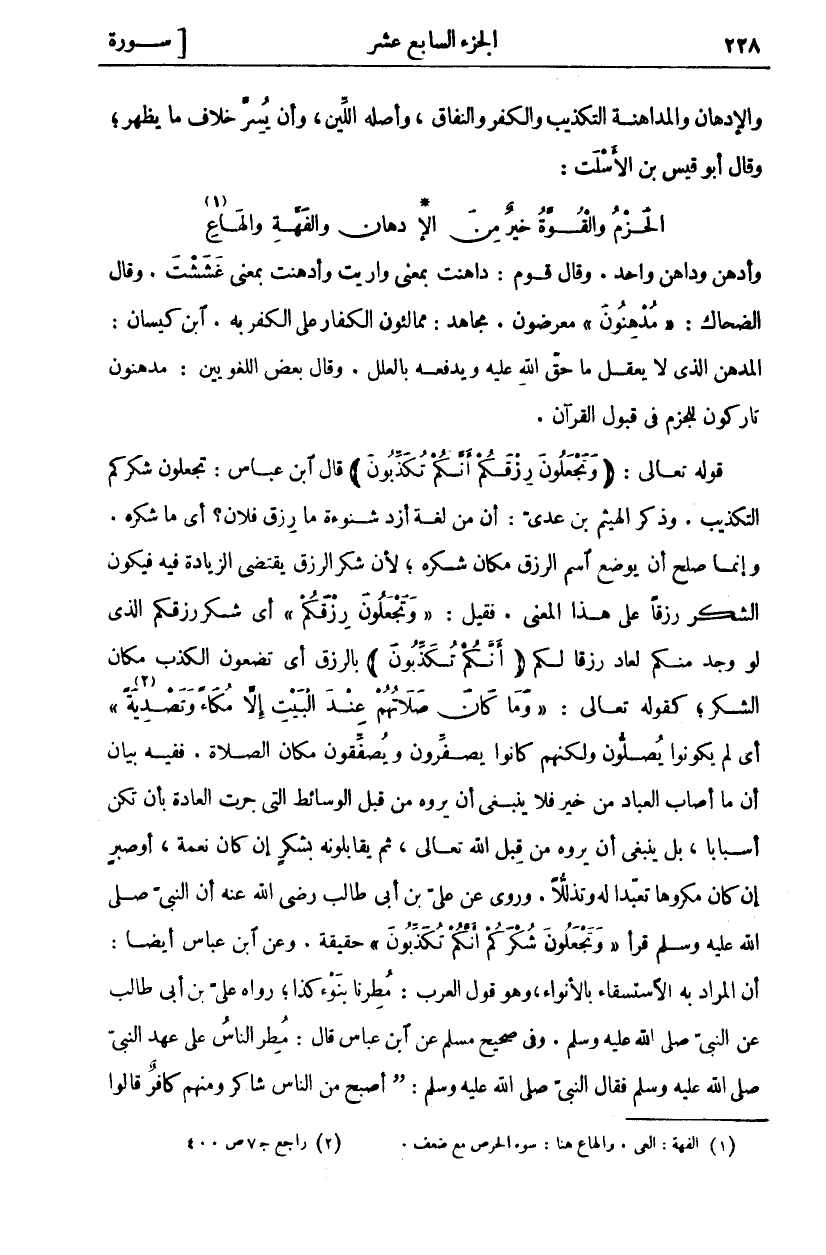 ٢٢٨ الجزء السابع عشر [ ســورة
والإدهان والمداهنـة التكذيب والكفر والنفاق ، وأصله اللِّين، وأن يُسِرَّ خلاف ما يظهر؛
وقال أبو قيس بن الأَسْلَت :
الحَزْمُ والقُـوَّةُ خيرٌ مِنَ الْإِ * دهان والفَهَّةِ والهَاعِ (١)
وأدهن وداهن واحد . وقال قـوم : داهنت بمعنى واريت وأدهنت بمعنى غَشَشْتَ . وقال
الضحاك : « مُدْهِنُونَ » معرضون . مجاهد : ممالئون الكفار على الكفر به . ٱبن كيسان :
المدهن الذى لا يعقـل ما حقّ الله عليه ويدفعـه بالعلل . وقال بعض اللغويين : مدهنون
تاركون للجزم فى قبول القرآن .
قوله تعـالى : ﴿ وَتَجْعَلُونَ رِزْقَـكُمْ أَنَّـكُمْ تُكَذِّبُونَ ﴾ قال ٱبن عبـاس : تجعلون شكركم
التكذيب . وذكر الهيثم بن عدىّ : أن من لغـة أزد شـنوءة ما رزق فلان؟ أى ما شكره .
وإنمـا صلح أن يوضع ٱسم الرزق مكان شـكره ؛ لأن شكر الرزق يقتضى الزيادة فيه فيكون
الشكر رزقاً على هـذا المعنى . فقيل : « وَتَجْعَلُونَ رِزْقَكُمْ » أى شـكر رزقكم الذى
لو وجد منـكم لعاد رزقا لـكم ﴿ أَنَّـكُمْ تُـكَذِّبُونَ ﴾ بالرزق أى تضعون الكذب مكان
الشـكر؛ كقوله تعـالى : « وَمَا كَانَ صَلَاتُهُمْ عِنْـدَ الْبَيْتِ إِلَّا مُكَاءً وَتَصْـدِيَةً (٢) »
أى لم يكونوا يُصـلُّون ولكنهم كانوا يصـفِّرون ويُصفِّقون مكان الصـلاة . ففيـه بيان
أن ما أصاب العباد من خير فلا ينبـغى أن يروه من قبل الوسائط التى جرت العادة بأن تكن
أسـبابا ، بل ينبغى أن يروه من قِبل الله تعـالى ، ثم يقابلونه بشكرٍ إن كان نعمة ، أو صبرٍ
إن كان مكروها تعبّدا له وتذلُّلاً . وروى عن علىّ بن أبى طالب رضى الله عنه أن النبىّ صـلى
الله عليه وسـلم قرأ « وَتَجْعَلُونَ شُكْرَكُمْ أَنَّكُمْ تُكَذِّبُونَ » حقيقة . وعن ٱبن عباس أيضـا :
أن المراد به الاستسقاء بالأنواء،وهو قول العرب : مُطِرنا بنَوْء كذا؛ رواه علىّ بن أبى طالب
عن النبىّ صلى الله عليه وسلم . وفى صحيح مسلم عن ٱبن عباس قال : مُطِر الناسُ على عهد النبىّ
صلى الله عليه وسلم فقال النبىّ صلى الله عليه وسلم : ” أصبح من الناس شاكر ومنهم كافرٌ قالوا
(١) الفهة : العى . والهاع هنا : سوء الحرص مع ضعف . (٢) راجع جـ ٧ ص ٤٠٠